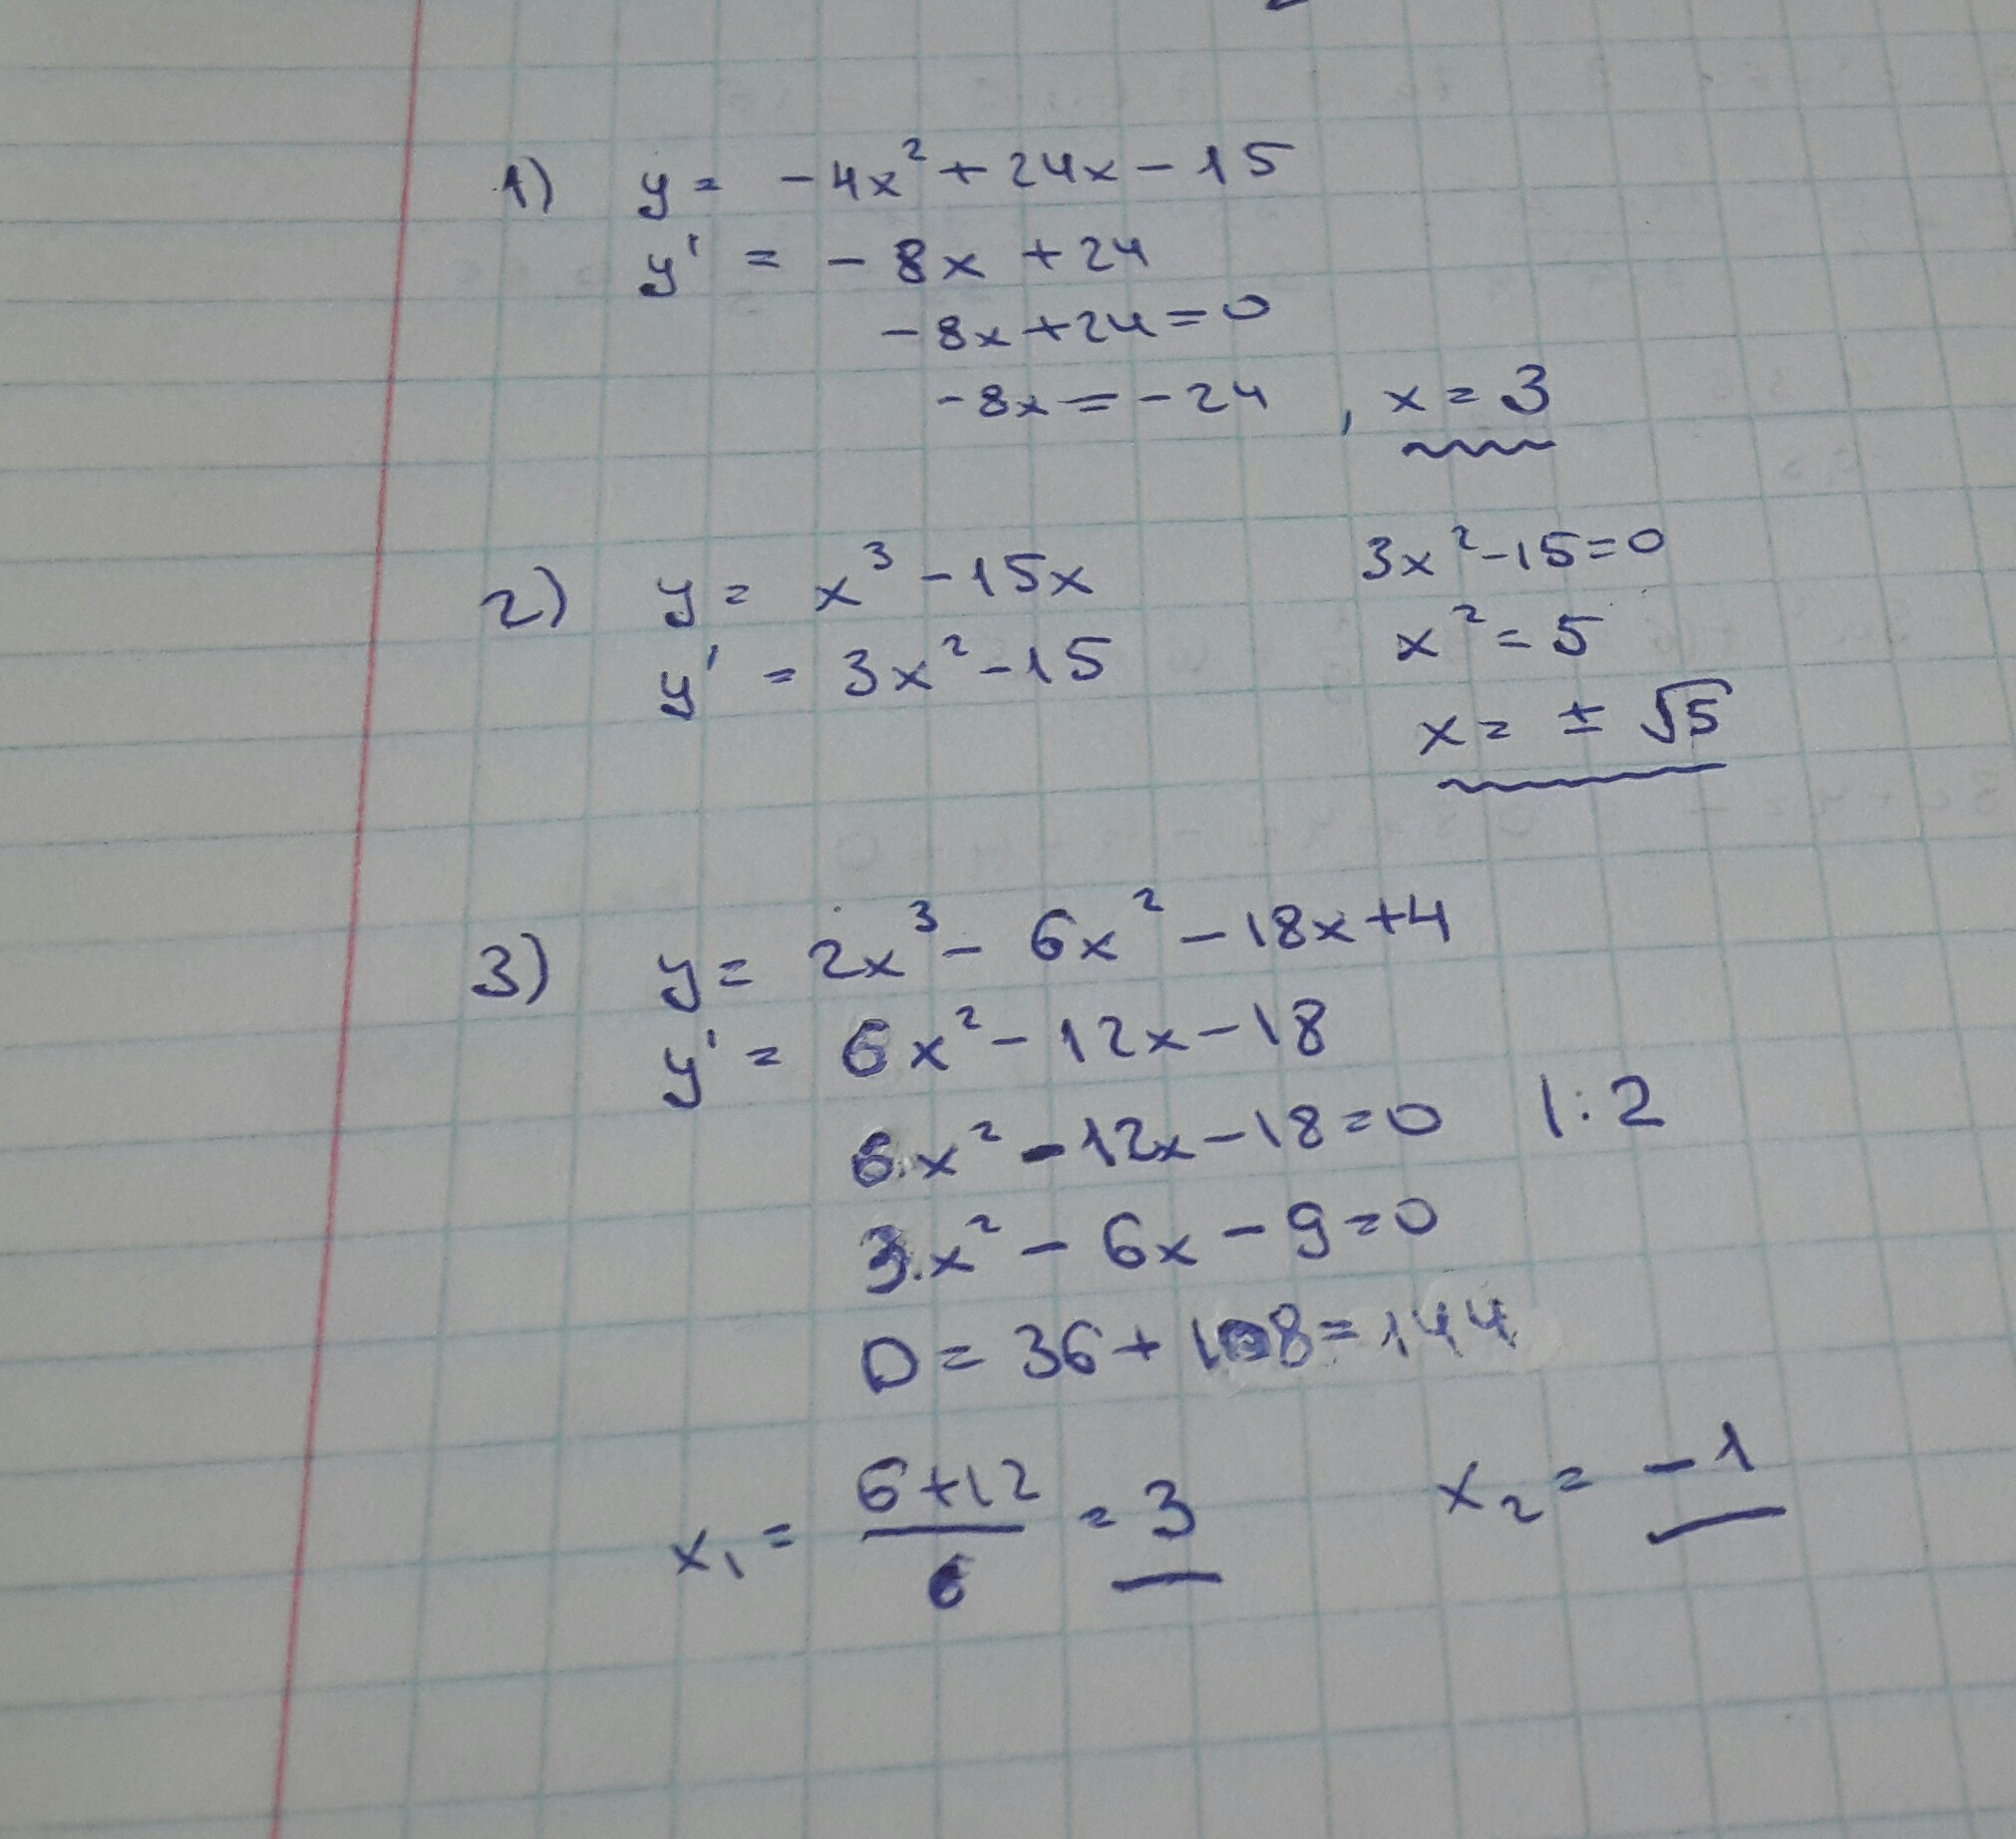 1) y = -4x² + 24x - 15
y' = -8x + 24
-8x + 24 = 0
-8x = -24 , x = 3
2) y = x³ - 15x
y' = 3x² - 15
3x² - 15 = 0
x² = 5
x = ± √5
3) y = 2x³ - 6x² - 18x + 4
y' = 6x² - 12x - 18
6x² - 12x - 18 = 0 |: 2
3x² - 6x - 9 = 0
D = 36 + 108 = 144
x₁ = (6+12)/6 = 3 x₂ = -1